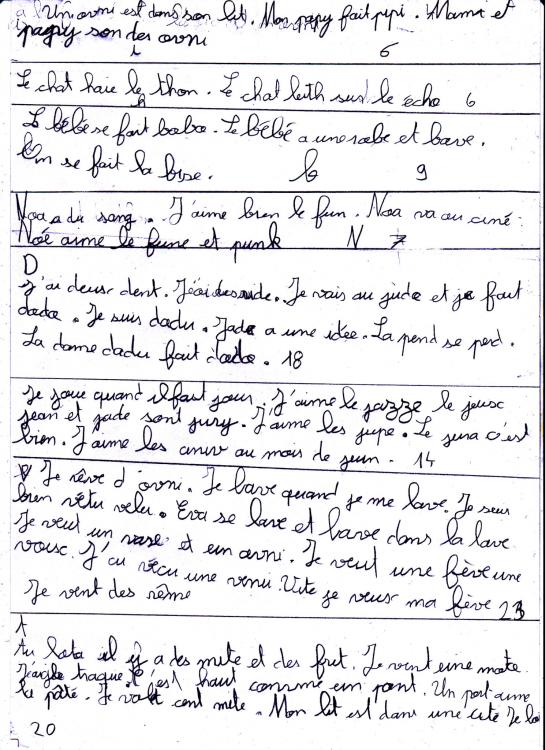 Un ovni est dans son lit. Mon papy fait pipi. Mami et
papy son des ovni
6
Le chat haie le thon. Le chat leith sur le écho 6
h
Le bébé se fait bobo. Le bébé a une robe et bave.
On se fait la bise. b 9
Noa a du sang. J'aime bien le fun. Noa va au ciné.
Noé aime le fune et punk N 7
D
J'ai deusc dent. Je vais au judo et je fait
dada. Je suis dadu. Jade a une idée. La pend se perd.
La dame dadu fait dada. 18
Je joue quand il faut jour. J'aime le jazze le jeusc
jean et jade sont jury. J'aime les jupe. Le jura c'est
bien. J'aime les au mois de juin. 14
V Je rêve d'ovni. Je bave quand je me lave. Je suis
bien vêtu velu. Eva se lave et bave dans la lave
Je veut un vase et un ovni. Je veut une fève une
vousc. J'ai vécu une venu. Vite je veux ma fève 23
Je vent des
A
Au il y a des mete et des fret. Je vent une mate
c'est haut comme un pont. Un port aime
le pâté. Je vait cent mete. Mon lit est dans une cité Je
20